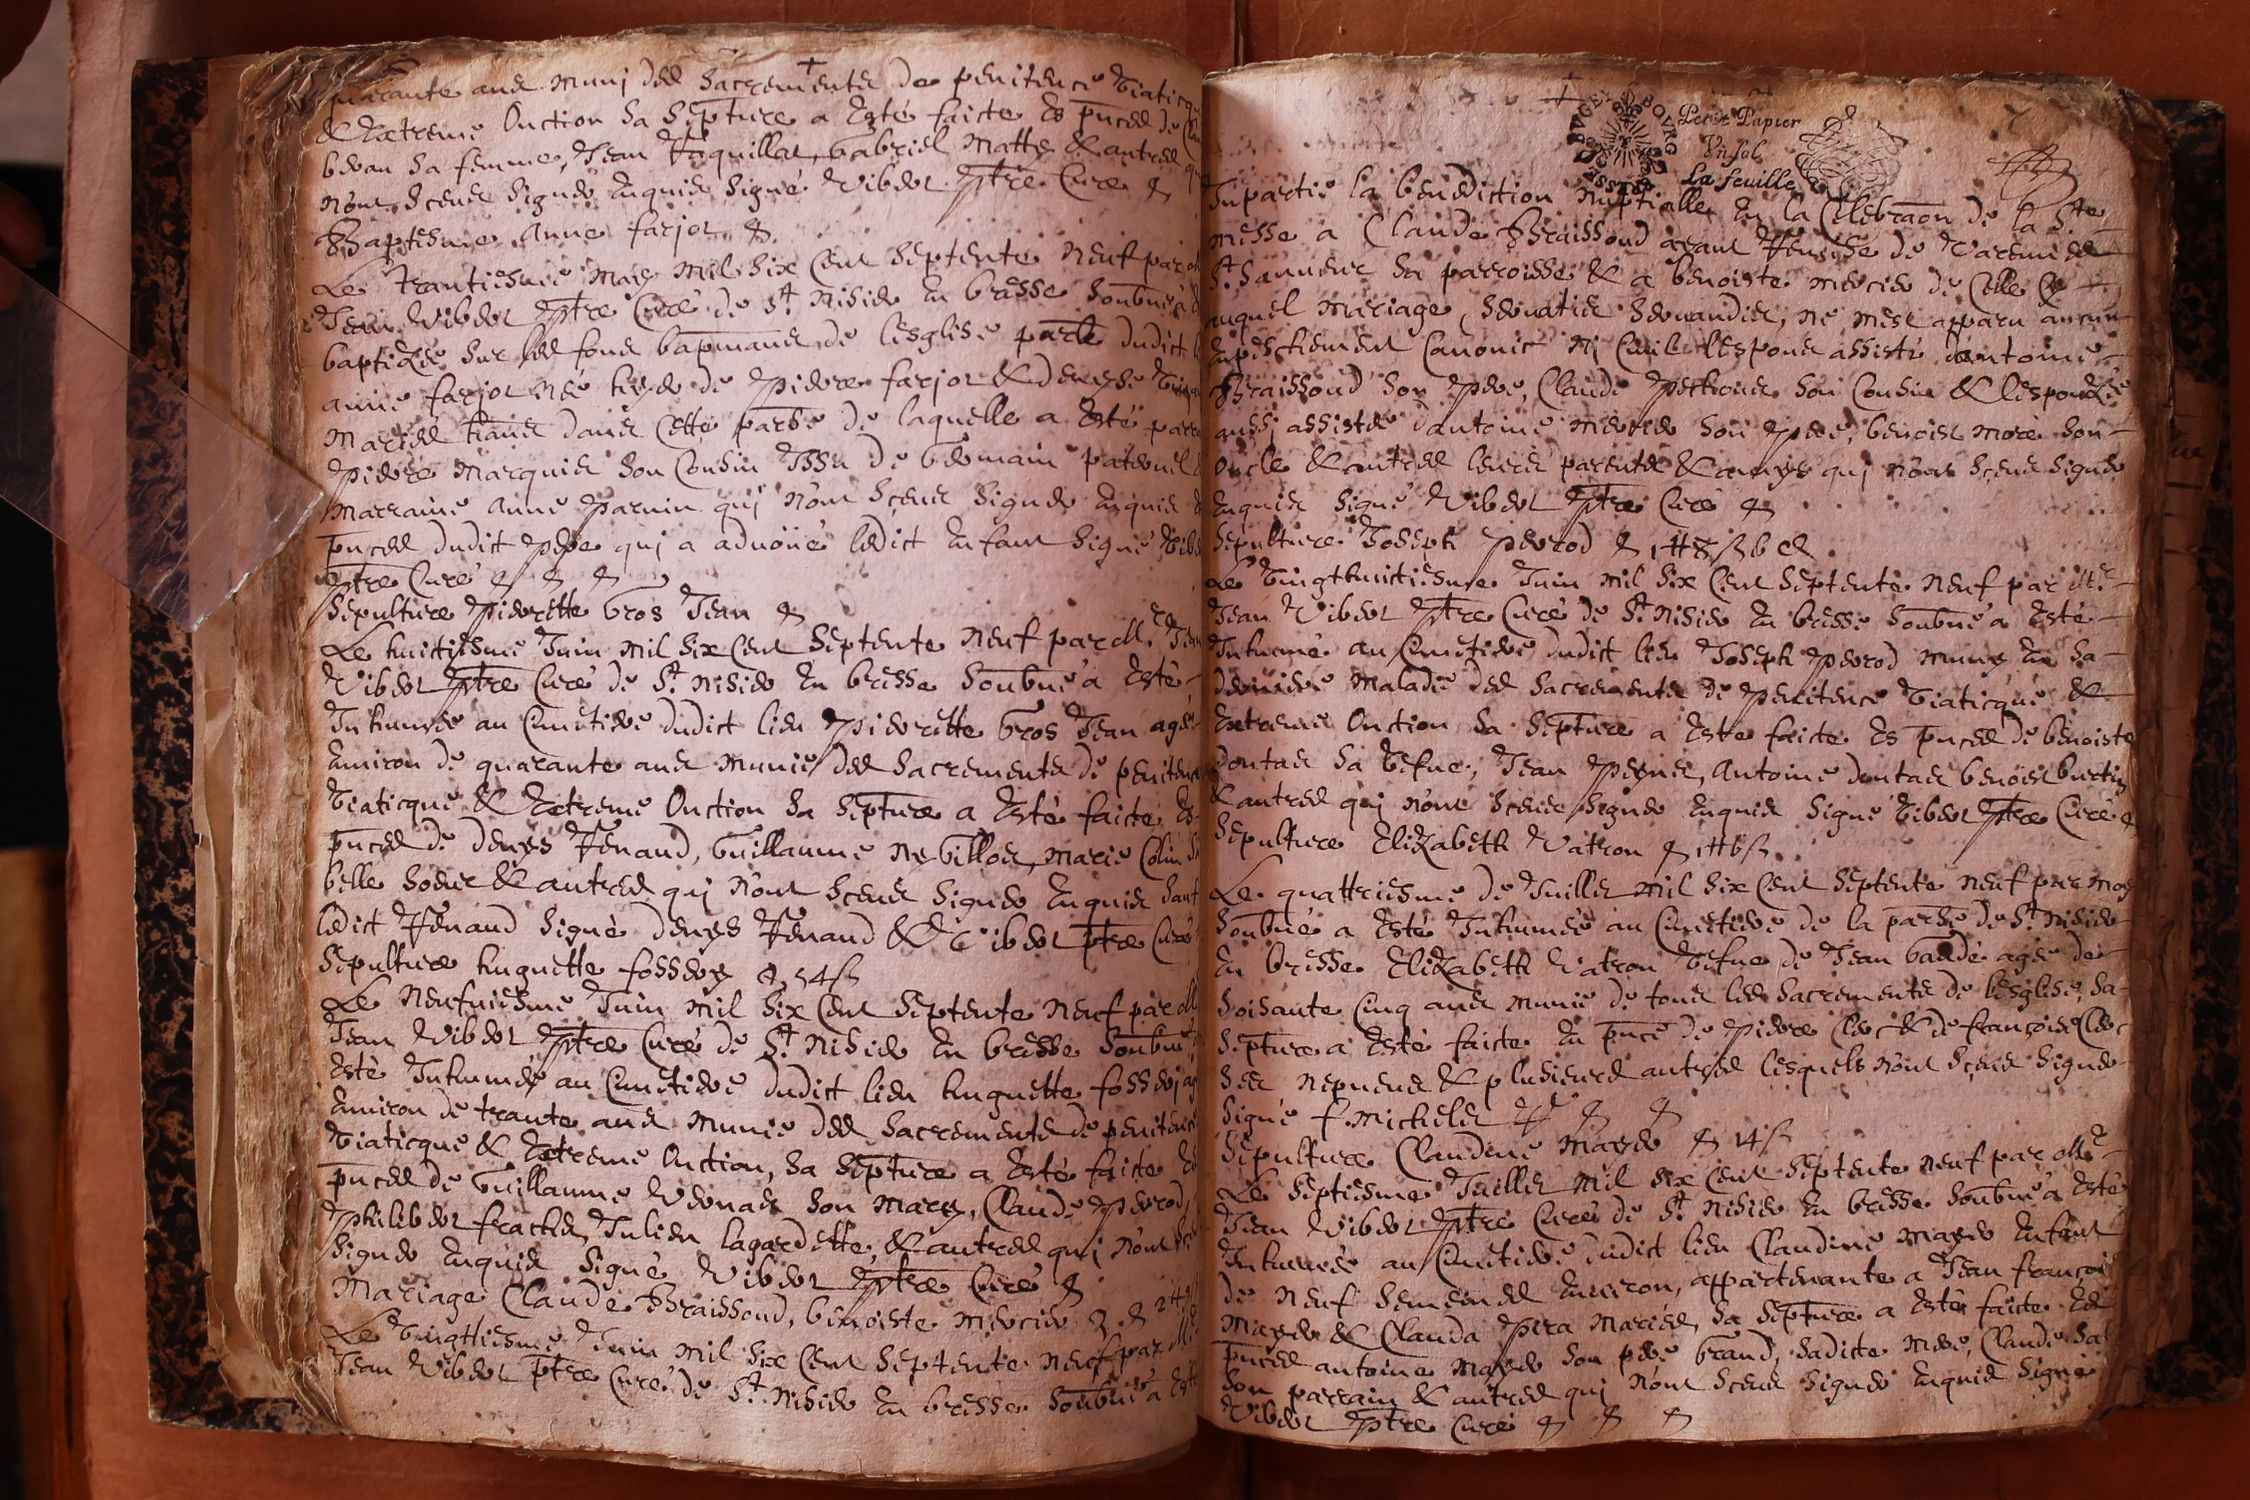 quarante ans munj des Sacrements de penitence Viaticq
& Extreme Onction sa septure a Esté faicte Es pnces de
bevan sa femme, Jean Gabriel Matthy & autres
n'ont sceus signer Enquis signé Viber ptre Curé
Baptesme anne farjot
Le trantiesme may mil six cent septente neuf par
Jean Viber ptre Curé de St Nisier En bresse soubné a
baptizée sur les fons bapmaus de lesglise parle dudict
anne farjot née hyer de pierre farjot & denyse
Mariés dans cette parse de laquelle a Esté parr
pierre Marquis son Cousin Issu de Germain paternel
Marraine anne parnin quj n'ont sceus signer Enquis
pnces dudict pere quj a advoüé ledict Enfant signé Vibe
ptre Curé
Sepulture pierrette Gros Jean
Le huitiesme Juin mil six cent septente neuf par Mre Jean
Viber ptre Curé de St Nisier En bresse soubné a Esté
Inhumée au Cimetiere dudict lieu pierrette Gros Jean agée
Environ de quarante ans munie des Sacrements de penitence
Viaticque & Extreme Onction sa septure a Esté faicte Es
pnces de denys Venaud, Guillaume Marie Colin sa
belle soeur & autres quj n'ont sceus signer Enquis sauf
ledict Venaud signé denys Venaud & Viber ptre Curé
Sepulture huguette fossey 54 s
Le neufuiesme Juin mil six cent septente neuf par M
Jean Viber ptre Curé de St Nisier En bresse soubné
Esté Inhumée au Cimetiere dudict lieu huguette fossey ag
Environ de trante ans munie des Sacrements de penitence
Viaticque & Extreme Onction, sa septure a Esté faicte Es
pnces de Guillaume son mary, Claude perrod,
philiber frachet, Julien lagardette, & autres quj n'ont
signer Enquis signé Viber ptre Curé
Mariage Claude Braissoud, benoiste mercier
Le vingttiesme Juin mil six cent septente neuf par Mre
Jean Viber ptre Curé de St Nisier En bresse soubné a Esté
Petit Papier
Un sol
La feuille
Inpartie la benediction nuptialle En la Celebraon de la Ste
messe a Claude Braissoud de Varennes
St Sauueur sa parroisse & a benoiste mercier de Celle Cy
auquel mariage, ne mest apparu aucun
Empeschement Canonic nj Ciuil lespous assisté dantoine
Braissoud son pere, Claude son Cousin & lespouse
aussj assistée dantoine mercier son pere, benoist moré son
oncle & autres leurs parents & amys quj n'ont sceus signer
Enquis signé Viber ptre Curé
Sepulture Joseph perrod
Le vingthuictiesme Juin mil six cent septente neuf par Mre
Jean Viber ptre Curé de St Nisier En bresse soubné a Esté
Inhumé au Cimetiere dudict lieu Joseph perrod muny En sa
derniere maladie des Sacrements de penitence Viaticque &
Extreme Onction, sa septure a Este faicte Es pnces de benoiste
dontas sa Vefue, Jean antoine dontas benoist
& autres quj n'ont sceus signer Enquis signé Viber ptre Curé
Sepulture Elizabeth Vatron
Le quattriesme de Juillet mil six cent septente neuf par moy
soubné a Esté Inhumée au Cimetiere de la parse de St Nisier
En bresse Elizabeth Vatron Vefue de Jean agée de
soisante cinq ans munie de tous les sacrements de lesglise, sa
septure a Esté faicte En pnce de pierre Clerc & de françois Clerc
ses nepueus & plusieurs autres lesquels n'ont sceus signer
signé f. michelet
Sepulture Claudine Mayer 14 s
Le septiesme Juillet mil six cent septente neuf par Mre
Jean Viber ptre Curé de St Nisier En bresse soubné a Esté
Inhumée au Cimetiere dudict lieu Claudine Mayer Enfant
de neuf semeines Enuiron, appartenante a Jean françois
Mayer & Clauda pira Mariés, sa septure a Esté faicte Es
pnces antoine Mayer son pere Grand, sadicte mere, Claude
son parrain & autres quj n'ont sceus signer Enquis signé
Viber ptre Curé